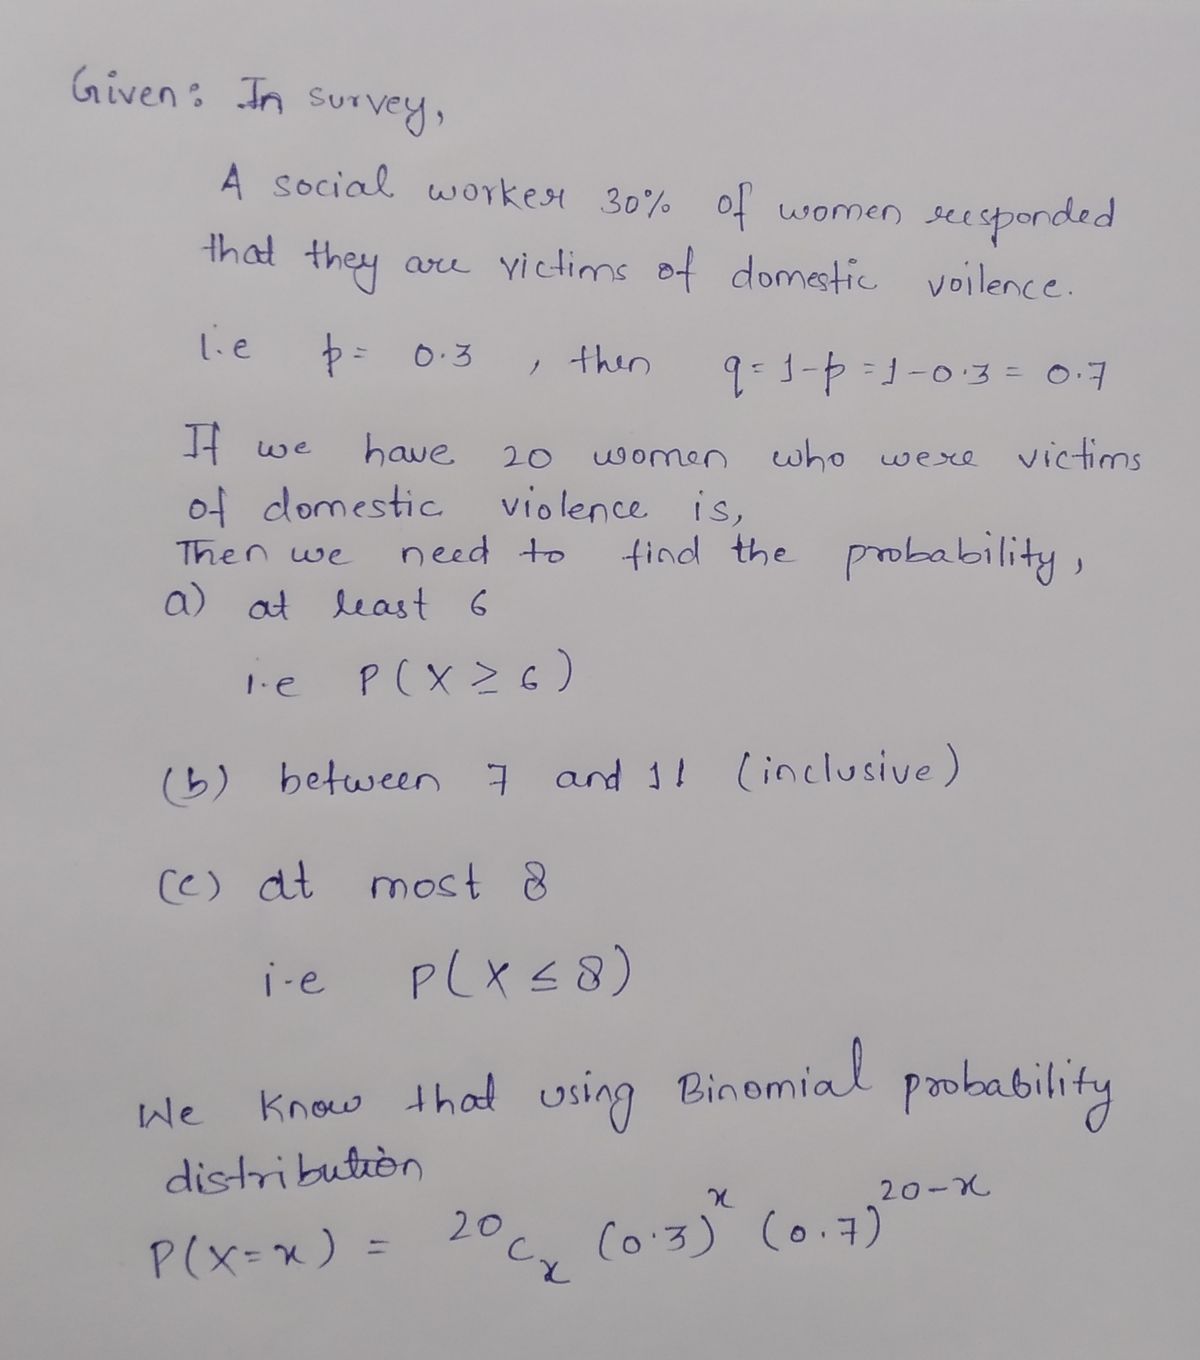 Given: In survey,
A social worker 30% of women responded
that they are victims of domestic voilence.
i.e p = 0.3 , then q = 1-p = 1-0.3 = 0.7
If we have 20 women who were victims
of domestic violence is,
Then we need to find the probability,
a) at least 6
i.e P(X ≥ 6)
(b) between 7 and 11 (inclusive)
(c) at most 8
i-e P(X ≤ 8)
We know that using Binomial probability
distribution
P(X=x) = ²⁰Cₓ (0.3)ˣ (0.7)²⁰⁻ˣ